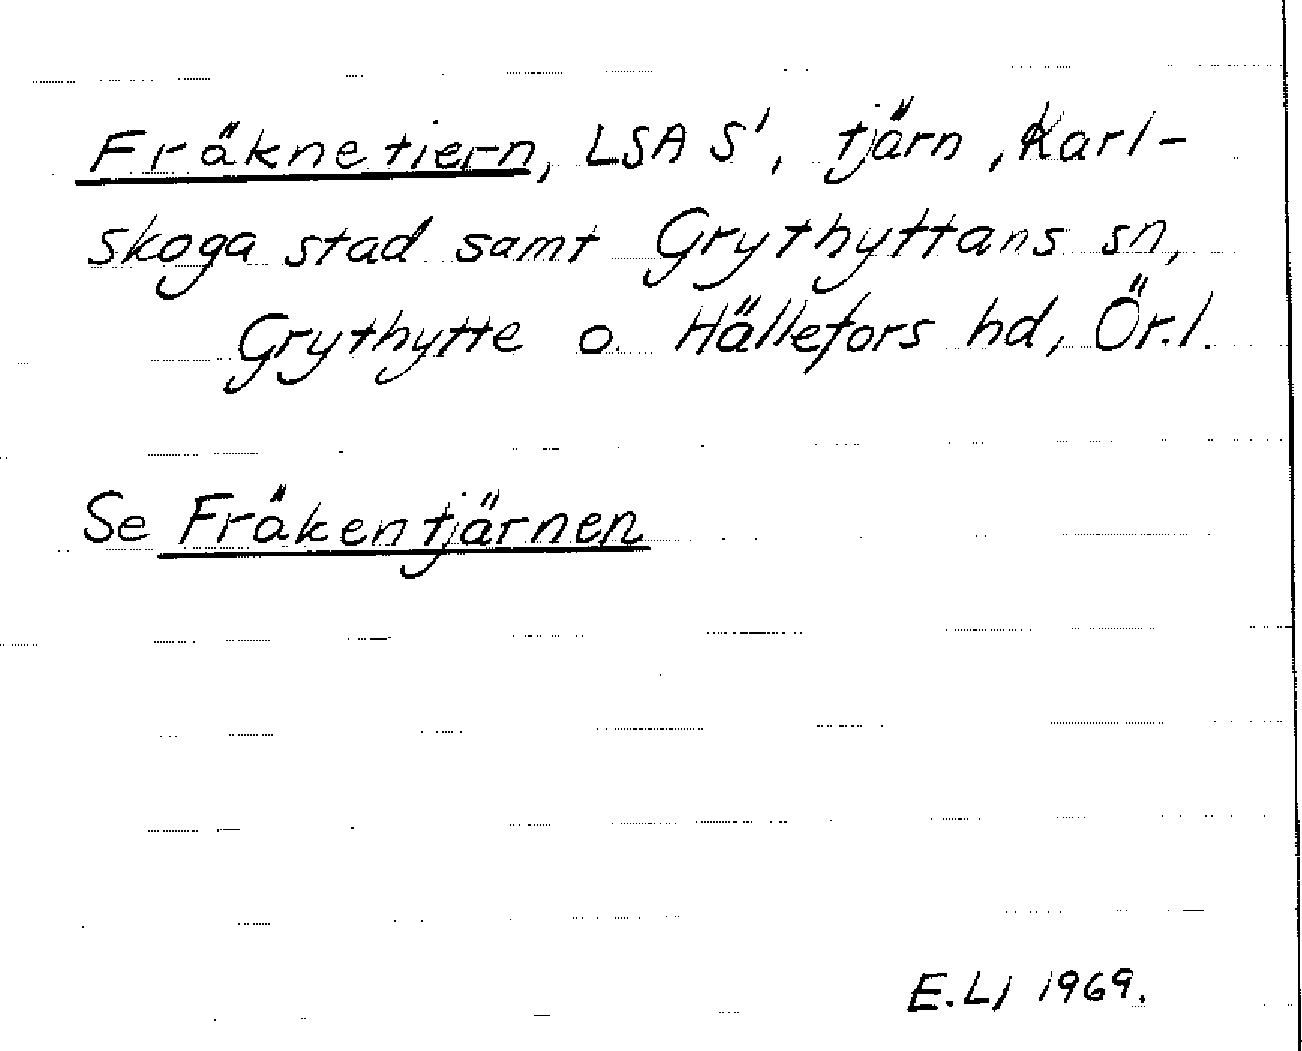 Fräknetiern, LSA S', tjärn, Karl-
skoga stad samt Grythyttans sn,
Grythytte o. Hällefors hd, Ör.l.
Se Fräkentjärnen
E.Lj 1969.